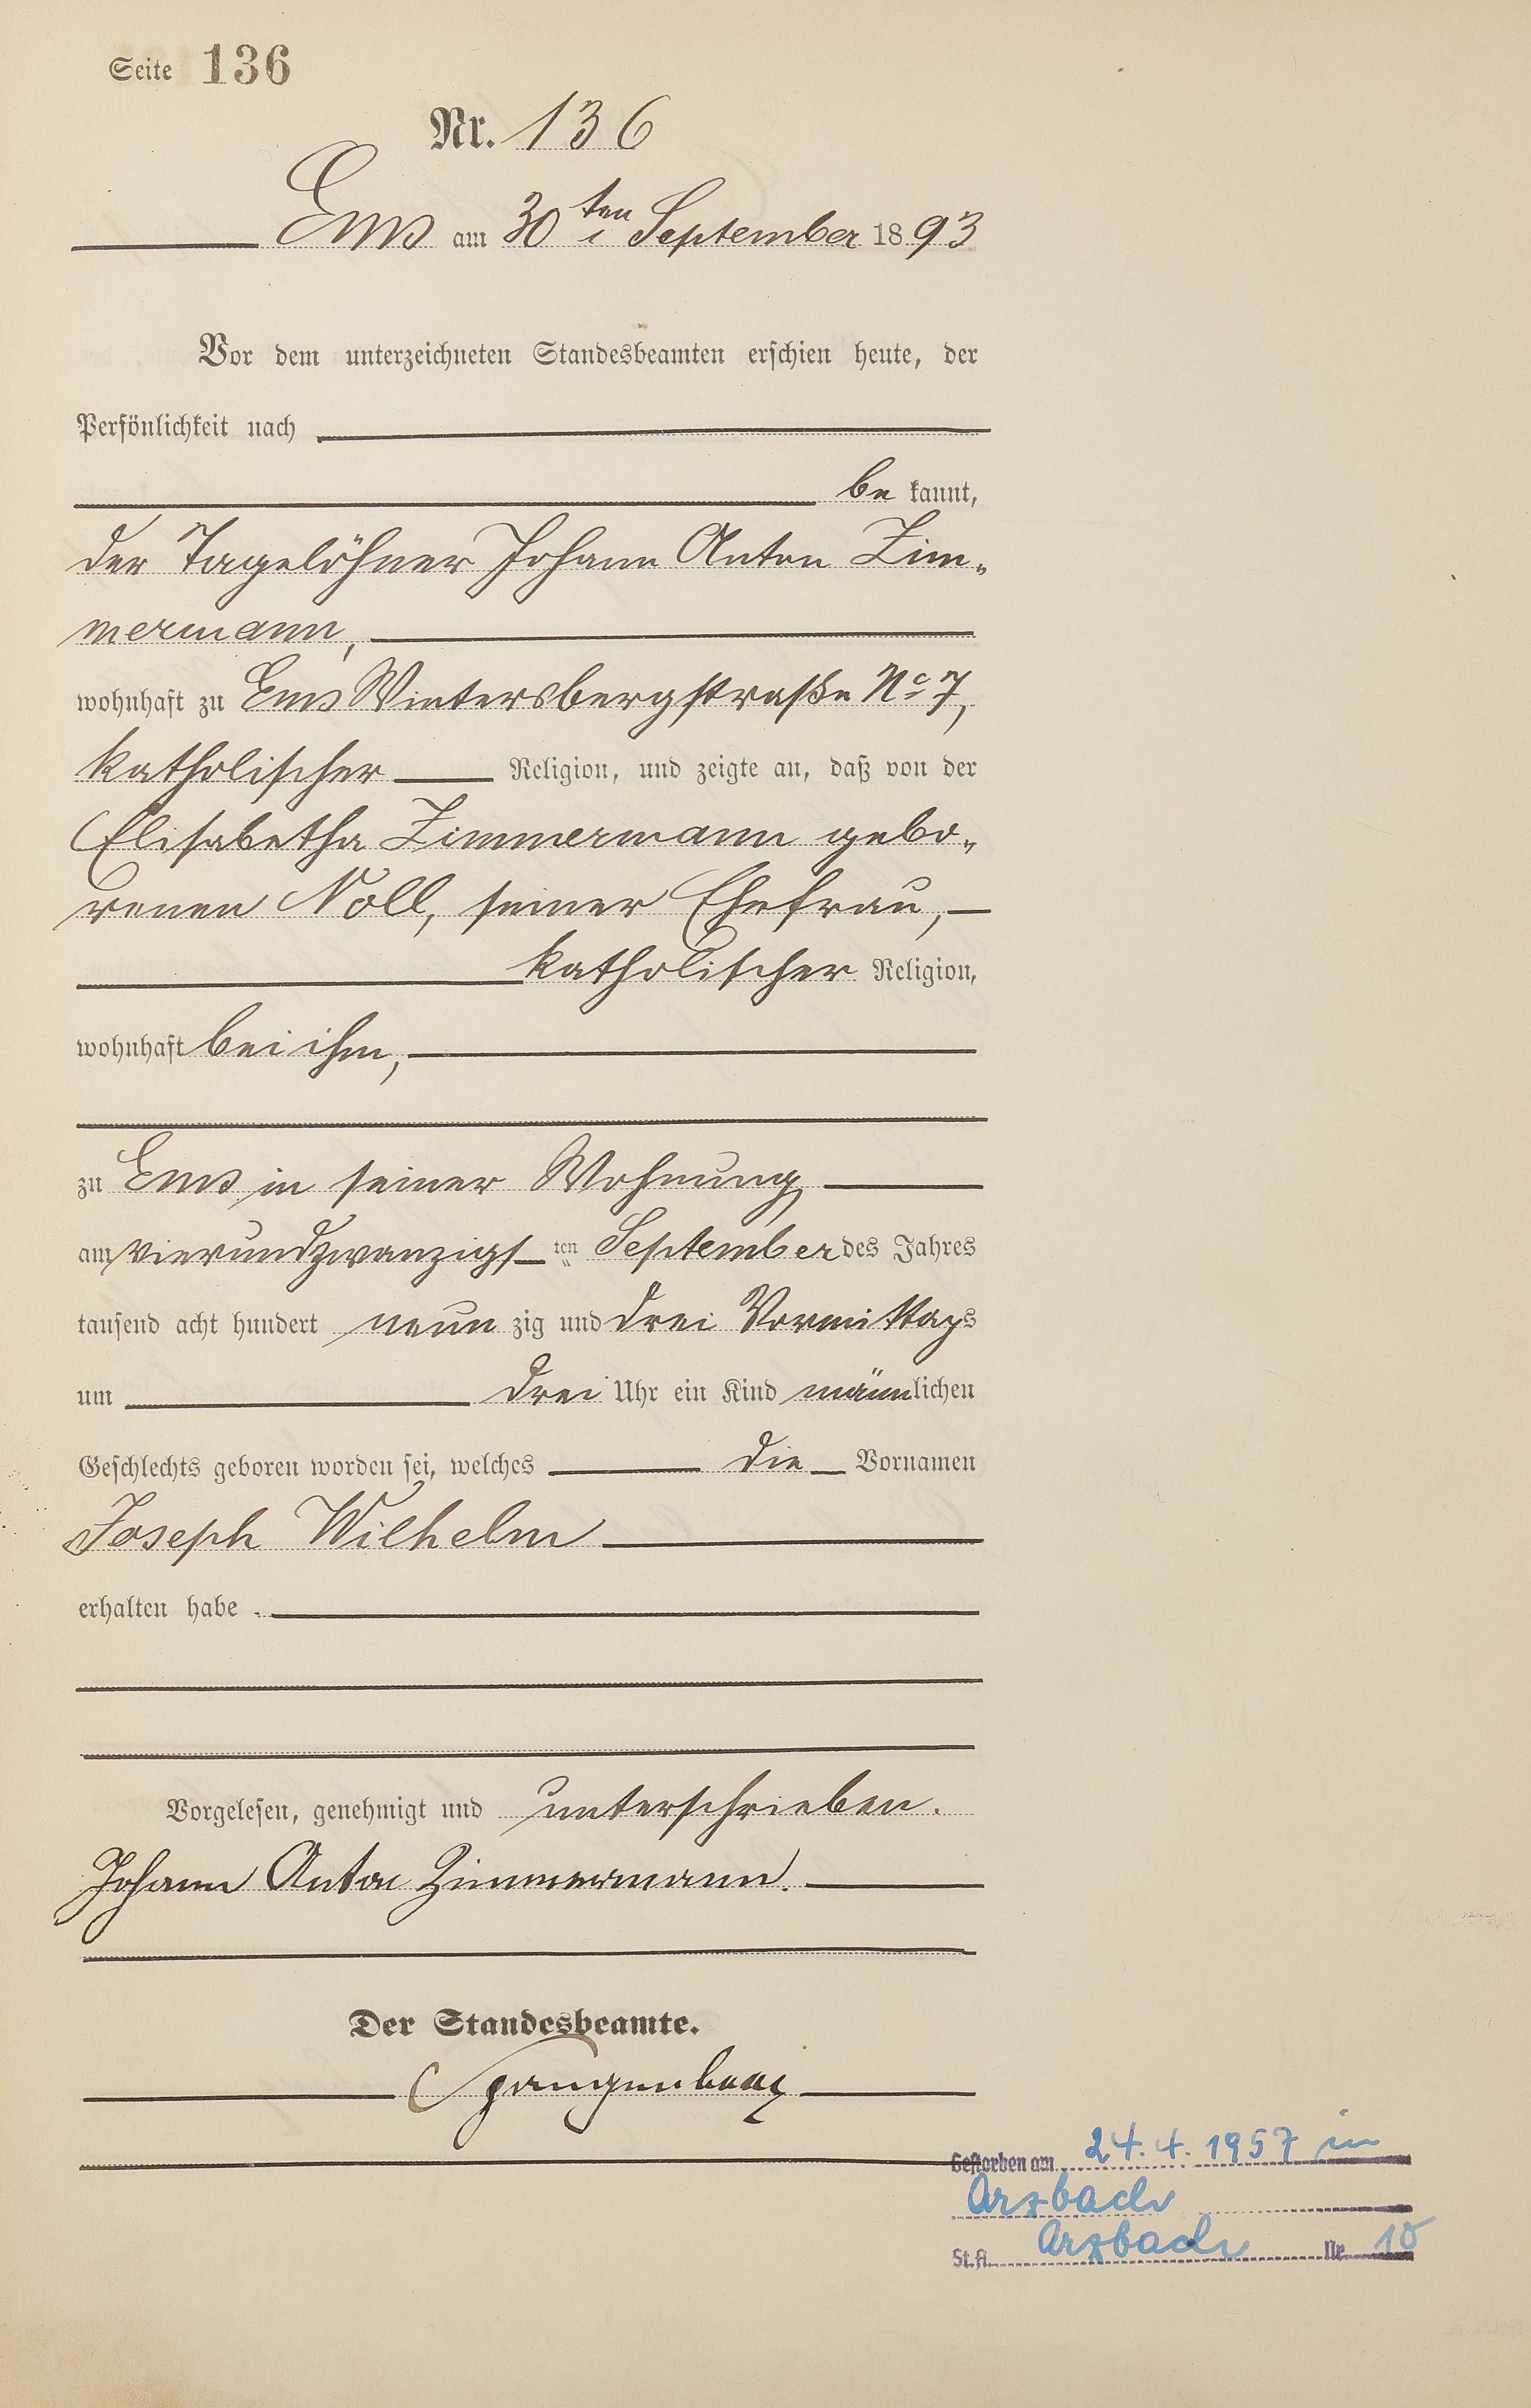 Seite 136
Nr. 136
Ems am 30ten September 1893
Vor dem unterzeichneten Standesbeamten erschien heute, der
Persönlichkeit nach
be kannt,
der Tagelöhner Johann Anton Zim„
mermann,
wohnhaft zu Ems Wintersbergstraße No 7,
katholischer Religion, und zeigte an, daß von der
Elisabetha Zimmermann gebo„
renen Noll, seiner Ehefrau,
katholischer Religion,
wohnhaft bei ihm,
zu Ems in seiner Wohnung
am vierundzwanzigs ten September des Jahres
tausend acht hundert neun zig und drei Vormittags
um drei Uhr ein Kind männlichen
Geschlechts geboren worden sei, welches die Vornamen
Joseph Wilhelm
erhalten habe.
Vorgelesen, genehmigt und unterschrieben.
Johann Anton Zimmermann.
Der Standesbeamte.
Spangenberg
Gestorben am 24.4.1957 in
Arzbach
St.A. Arzbach Nr. 10